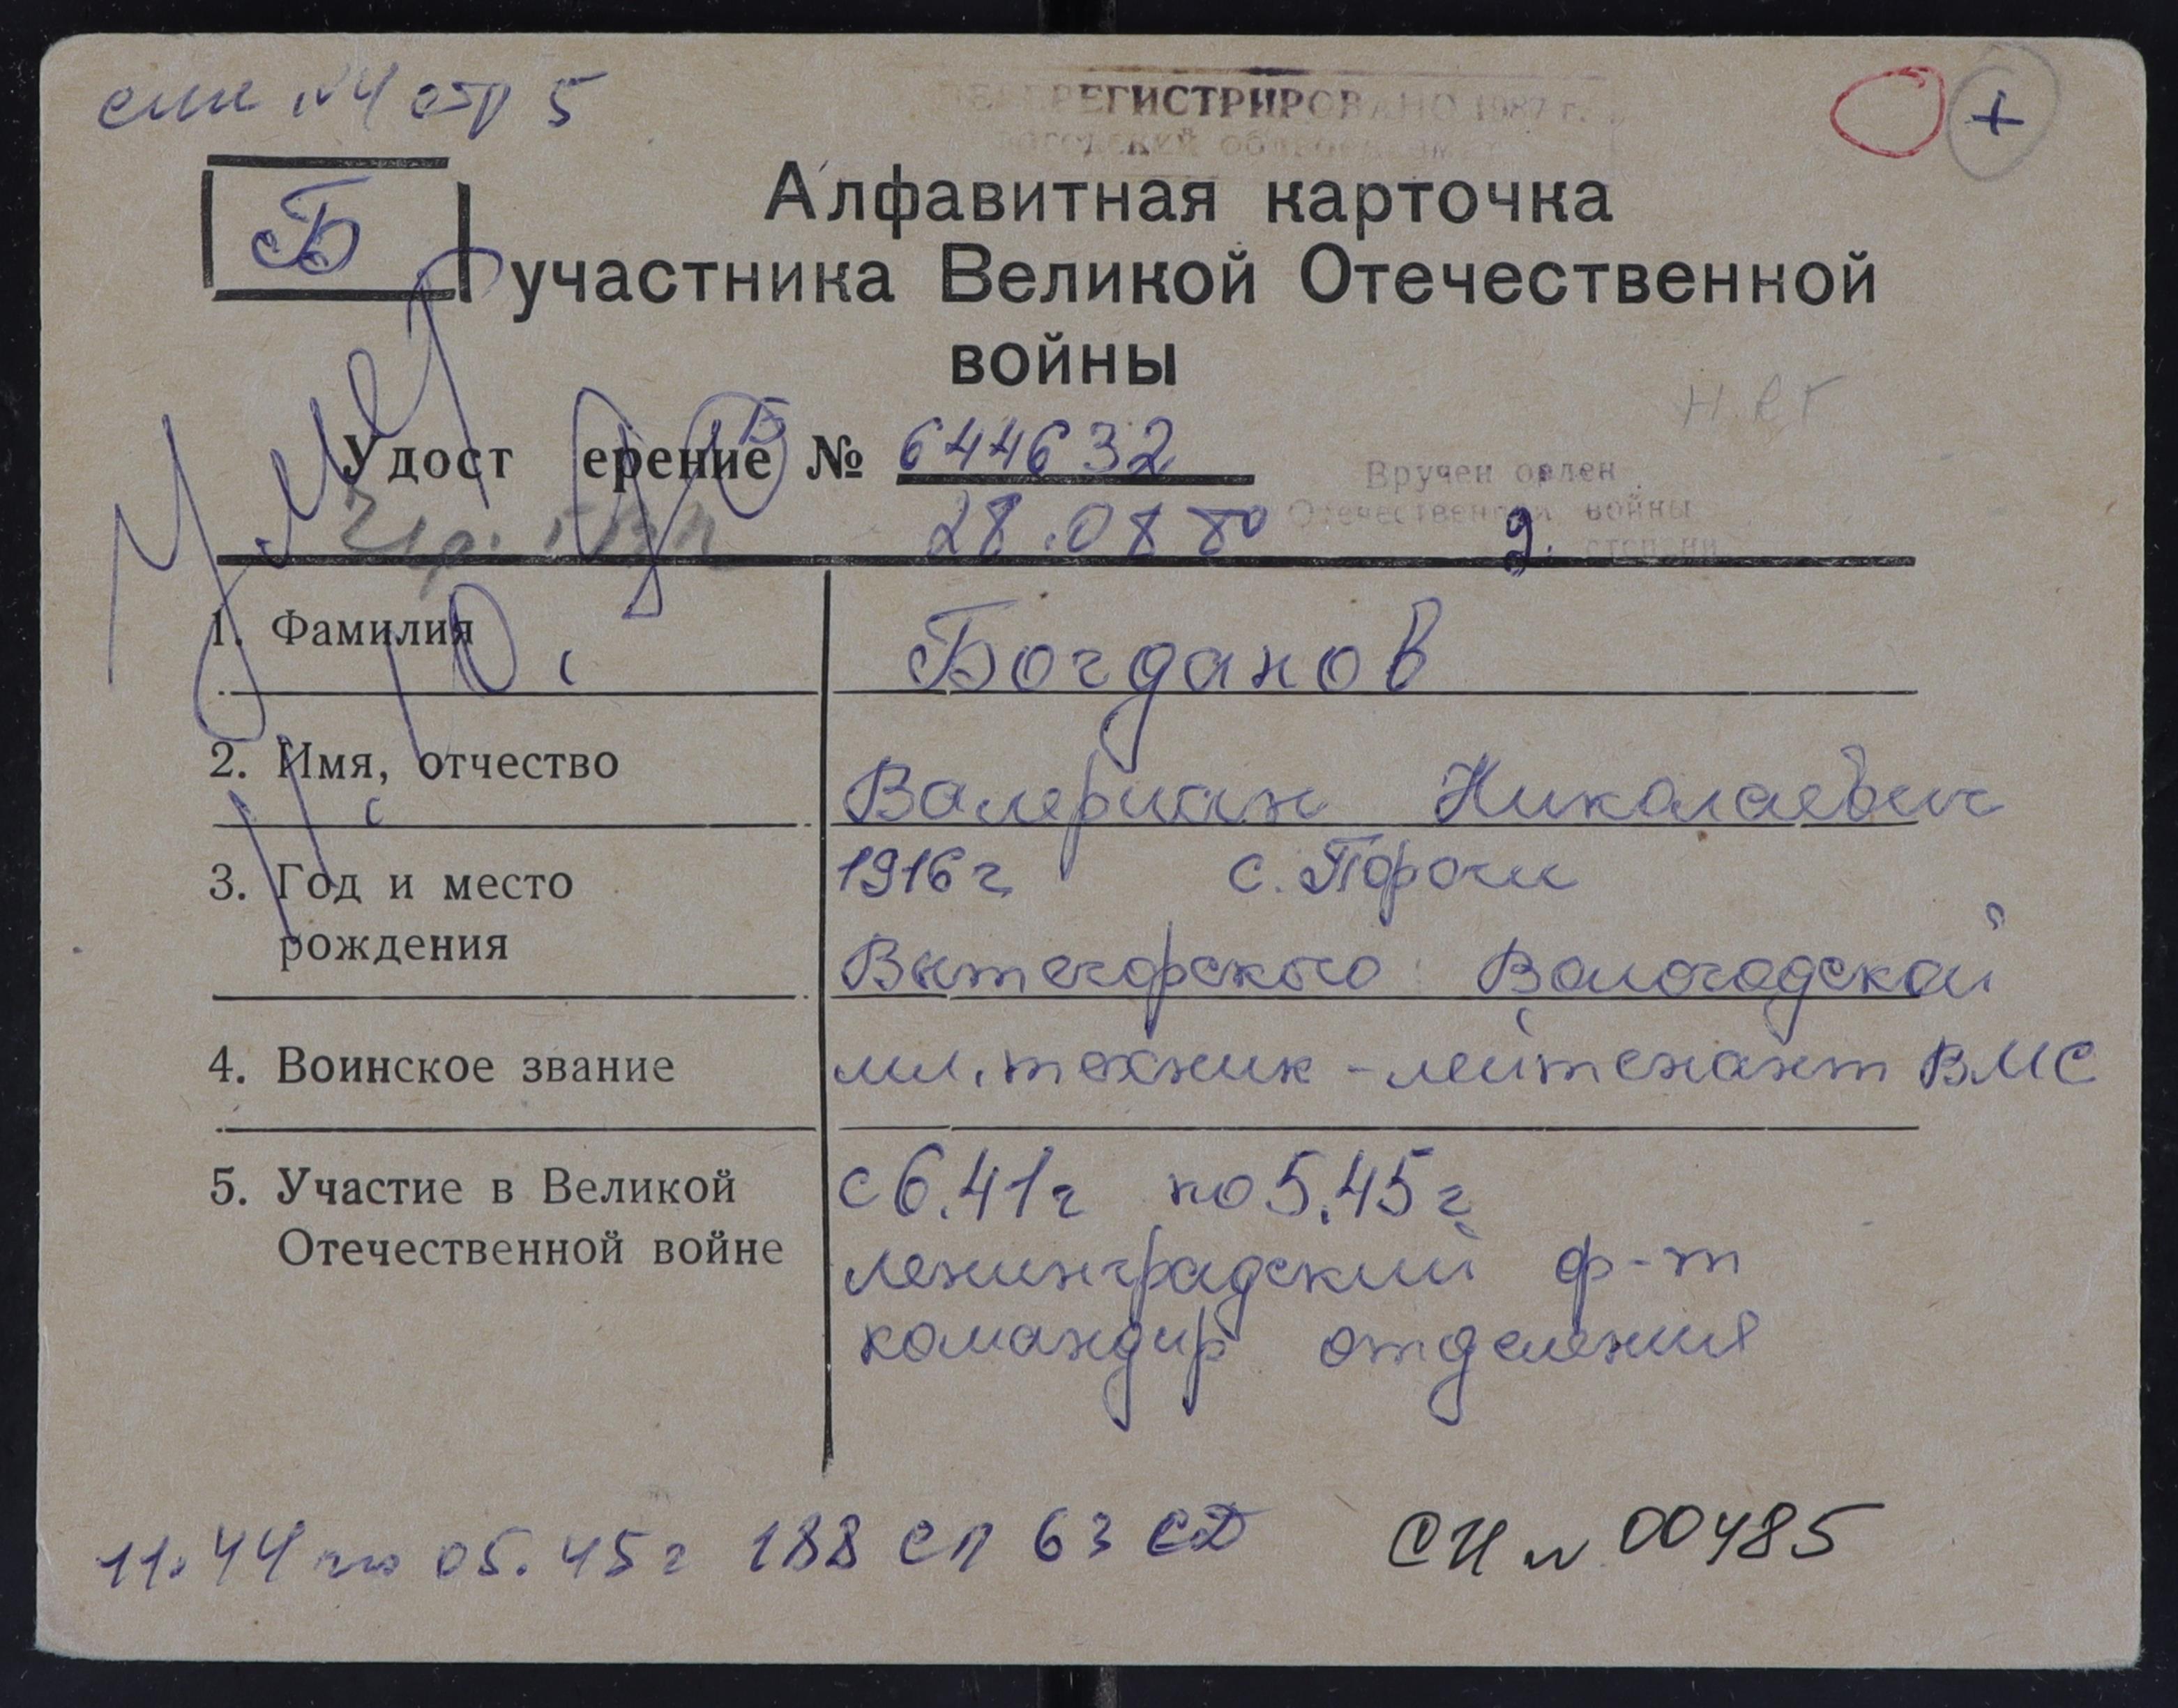 спи №4 стр 5
ПЕРЕРЕГИСТРИРОВАНО 1987 г.
+
Б
Алфавитная карточка
участника Великой Отечественной
войны
Б
Удост ерение № 644632
Вручен орден
Отечественной войны
28.08 80
2. степени
1. Фамилия
Богданов
2. Имя, отчество
Валериан Николаевич
3. Год и место
рождения
1916 г с. Пороги
Вытегорского Вологодской
4. Воинское звание
мл. техник-лейтенант ВМС
5. Участие в Великой
Отечественной войне
с 6.41 г по 5.45 г
ленинградский ф-т
командир отделения
11.44 по 05.45 г 188 СП 63 СД СИ № 00485